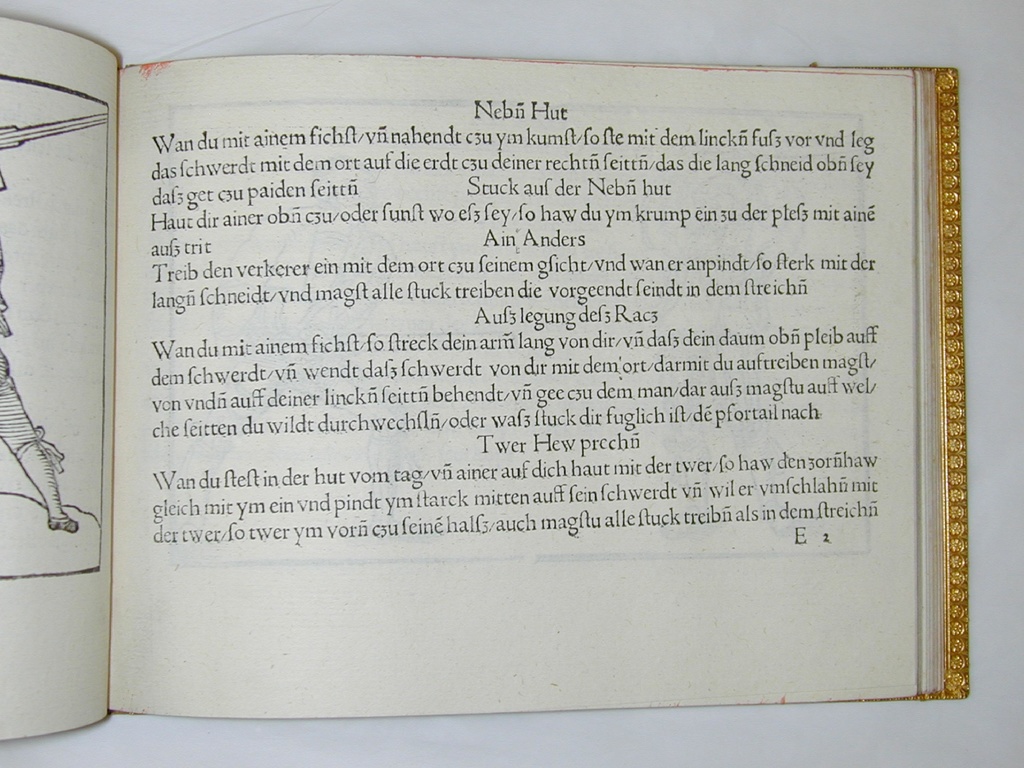 Nebn̄ Hut
Wan du mit ainem fichſt/vn̄ nahendt cʒu ym kumſt/ſo ſte mit dem linckn̄ fuſʒ vor vnd leg
das ſchwerdt mit dem ort auf die erdt cʒu deiner rechtn̄ ſeittn̄/das die lang ſchneid obn̄ ſey
daſʒ get cʒu paiden ſeittn̄ Stuck auf der Nebn̄ hut
Haut dir ainer obn̄ cʒu/oder ſunſt wo eſʒ ſey/ſo haw du ym krump ein ʒu der pleſʒ mit ainē
auſʒ trit Ain Anders
Treib den verkerer ein mit dem ort cʒu ſeinem gſicht/vnd wan er anpindt/ſo ſterk mit der
langn̄ ſchneidt/vnd magſt alle ſtuck treiben die vorgeendt ſeindt in dem ſtreichn̄
Auſʒ legung deſʒ Racʒ
Wan du mit ainem fichſt/ſo ſtreck dein arm̄ lang von dir/vn̄ daſʒ dein daum obn̄ pleib auff
dem ſchwerdt/vn̄ wendt daſʒ ſchwerdt von dir mit dem ort/darmit du auftreiben magſt/
von vndn̄ auff deiner linckn̄ ſeittn̄ behendt/vn̄ gee cʒu dem man/dar auſʒ magſtu auff wel/
che ſeitten du wildt durchwechſln̄/oder waſʒ ſtuck dir fuglich iſt/dē pfortail nach
Twer Hew prechn̄
Wan du ſteſt in der hut vom tag/vn̄ ainer auf dich haut mit der twer/ſo haw den ʒorn̄haw
gleich mit ym ein vnd pindt ym ſtarck mitten auff ſein ſchwerdt vn̄ wil er vmſchlahn̄ mit
der twer/ſo twer ym vorn̄ cʒu ſeinē halſʒ/auch magſtu alle ſtuck treibn̄ als in dem ſtreichn̄
E 2